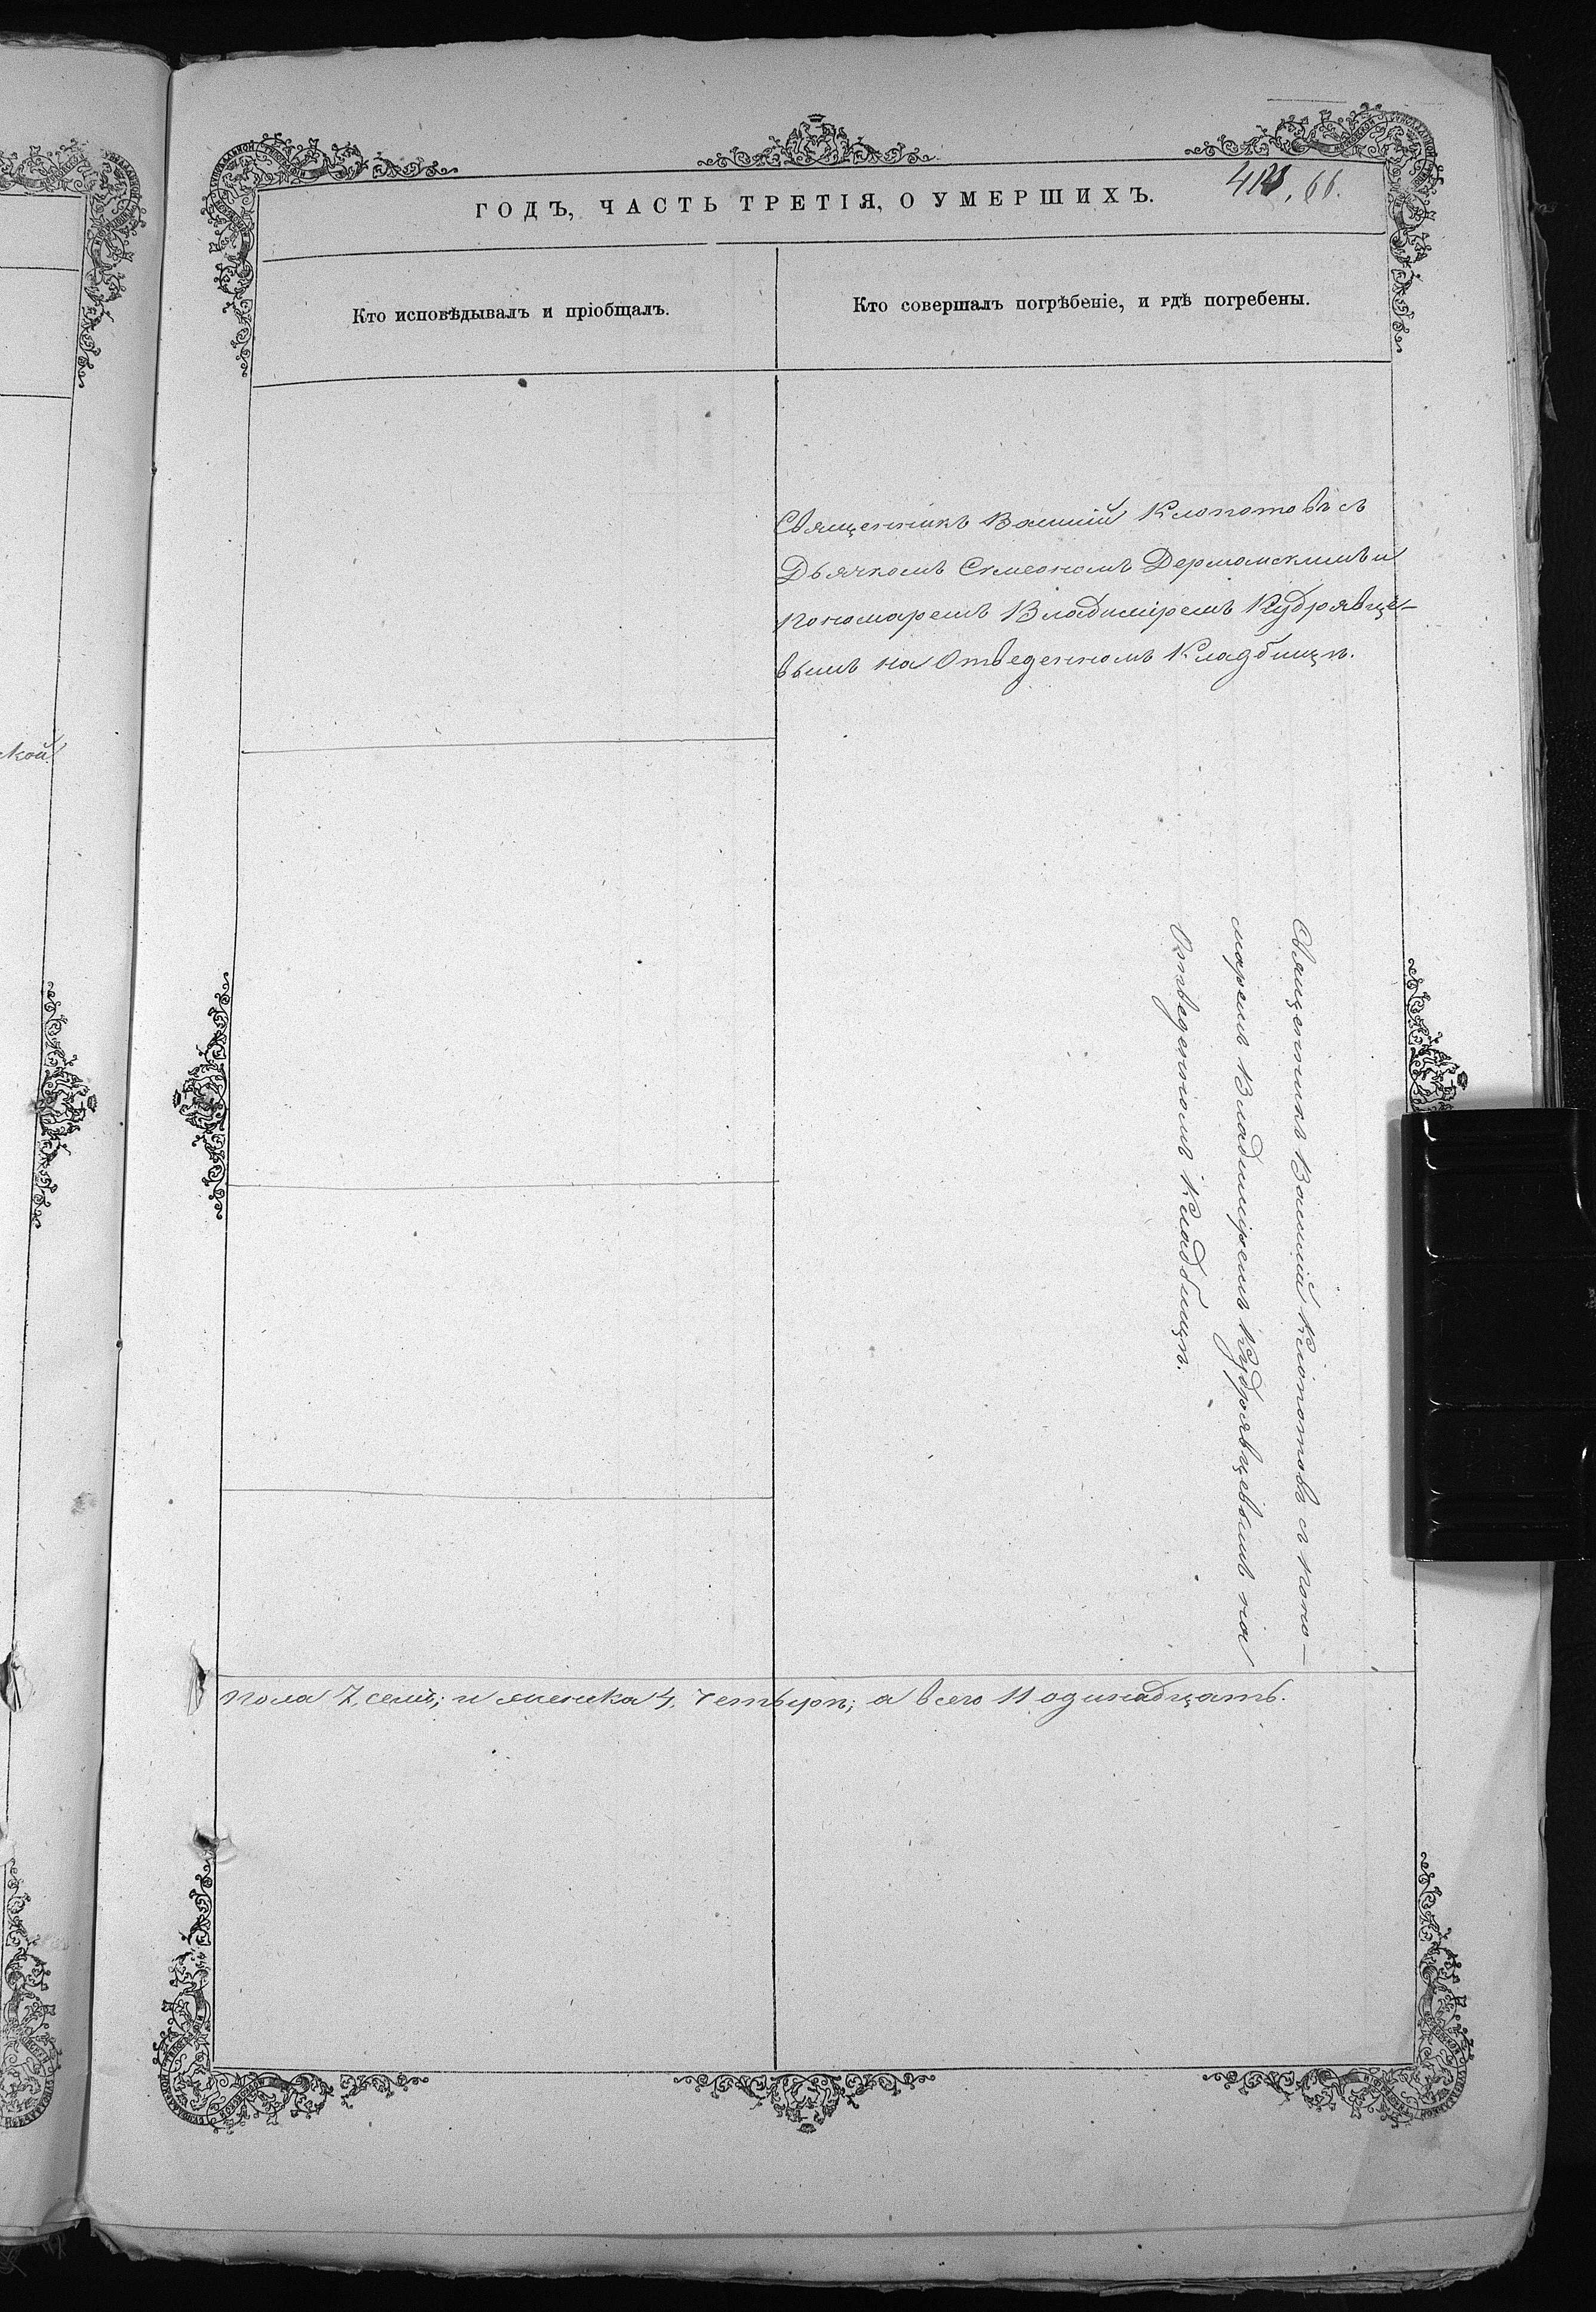 ской
ГОДЪ, ЧАСТЬ ТРЕТІЯ, О УМЕРШИХЪ.
66.
Кто исповѣдывалъ и пріобщалъ.
Кто совершалъ погрѣбеніе, и гдѣ погребены.
Священникъ Василій Клопотовъ съ
Дьячкомъ Симеономъ Дермамскимъ и
пономаремъ Владиміремъ Кудрявце-
вымъ на Отведенномъ Кладбищѣ.
Священникъ Василій Клопотовъ съ поно-
маремъ Владиміремъ Кудрявцевымъ на
Отведенномъ Кладбищѣ.
пола 7, семь; и женска 4, четыре; а всего 11 одинадцать.